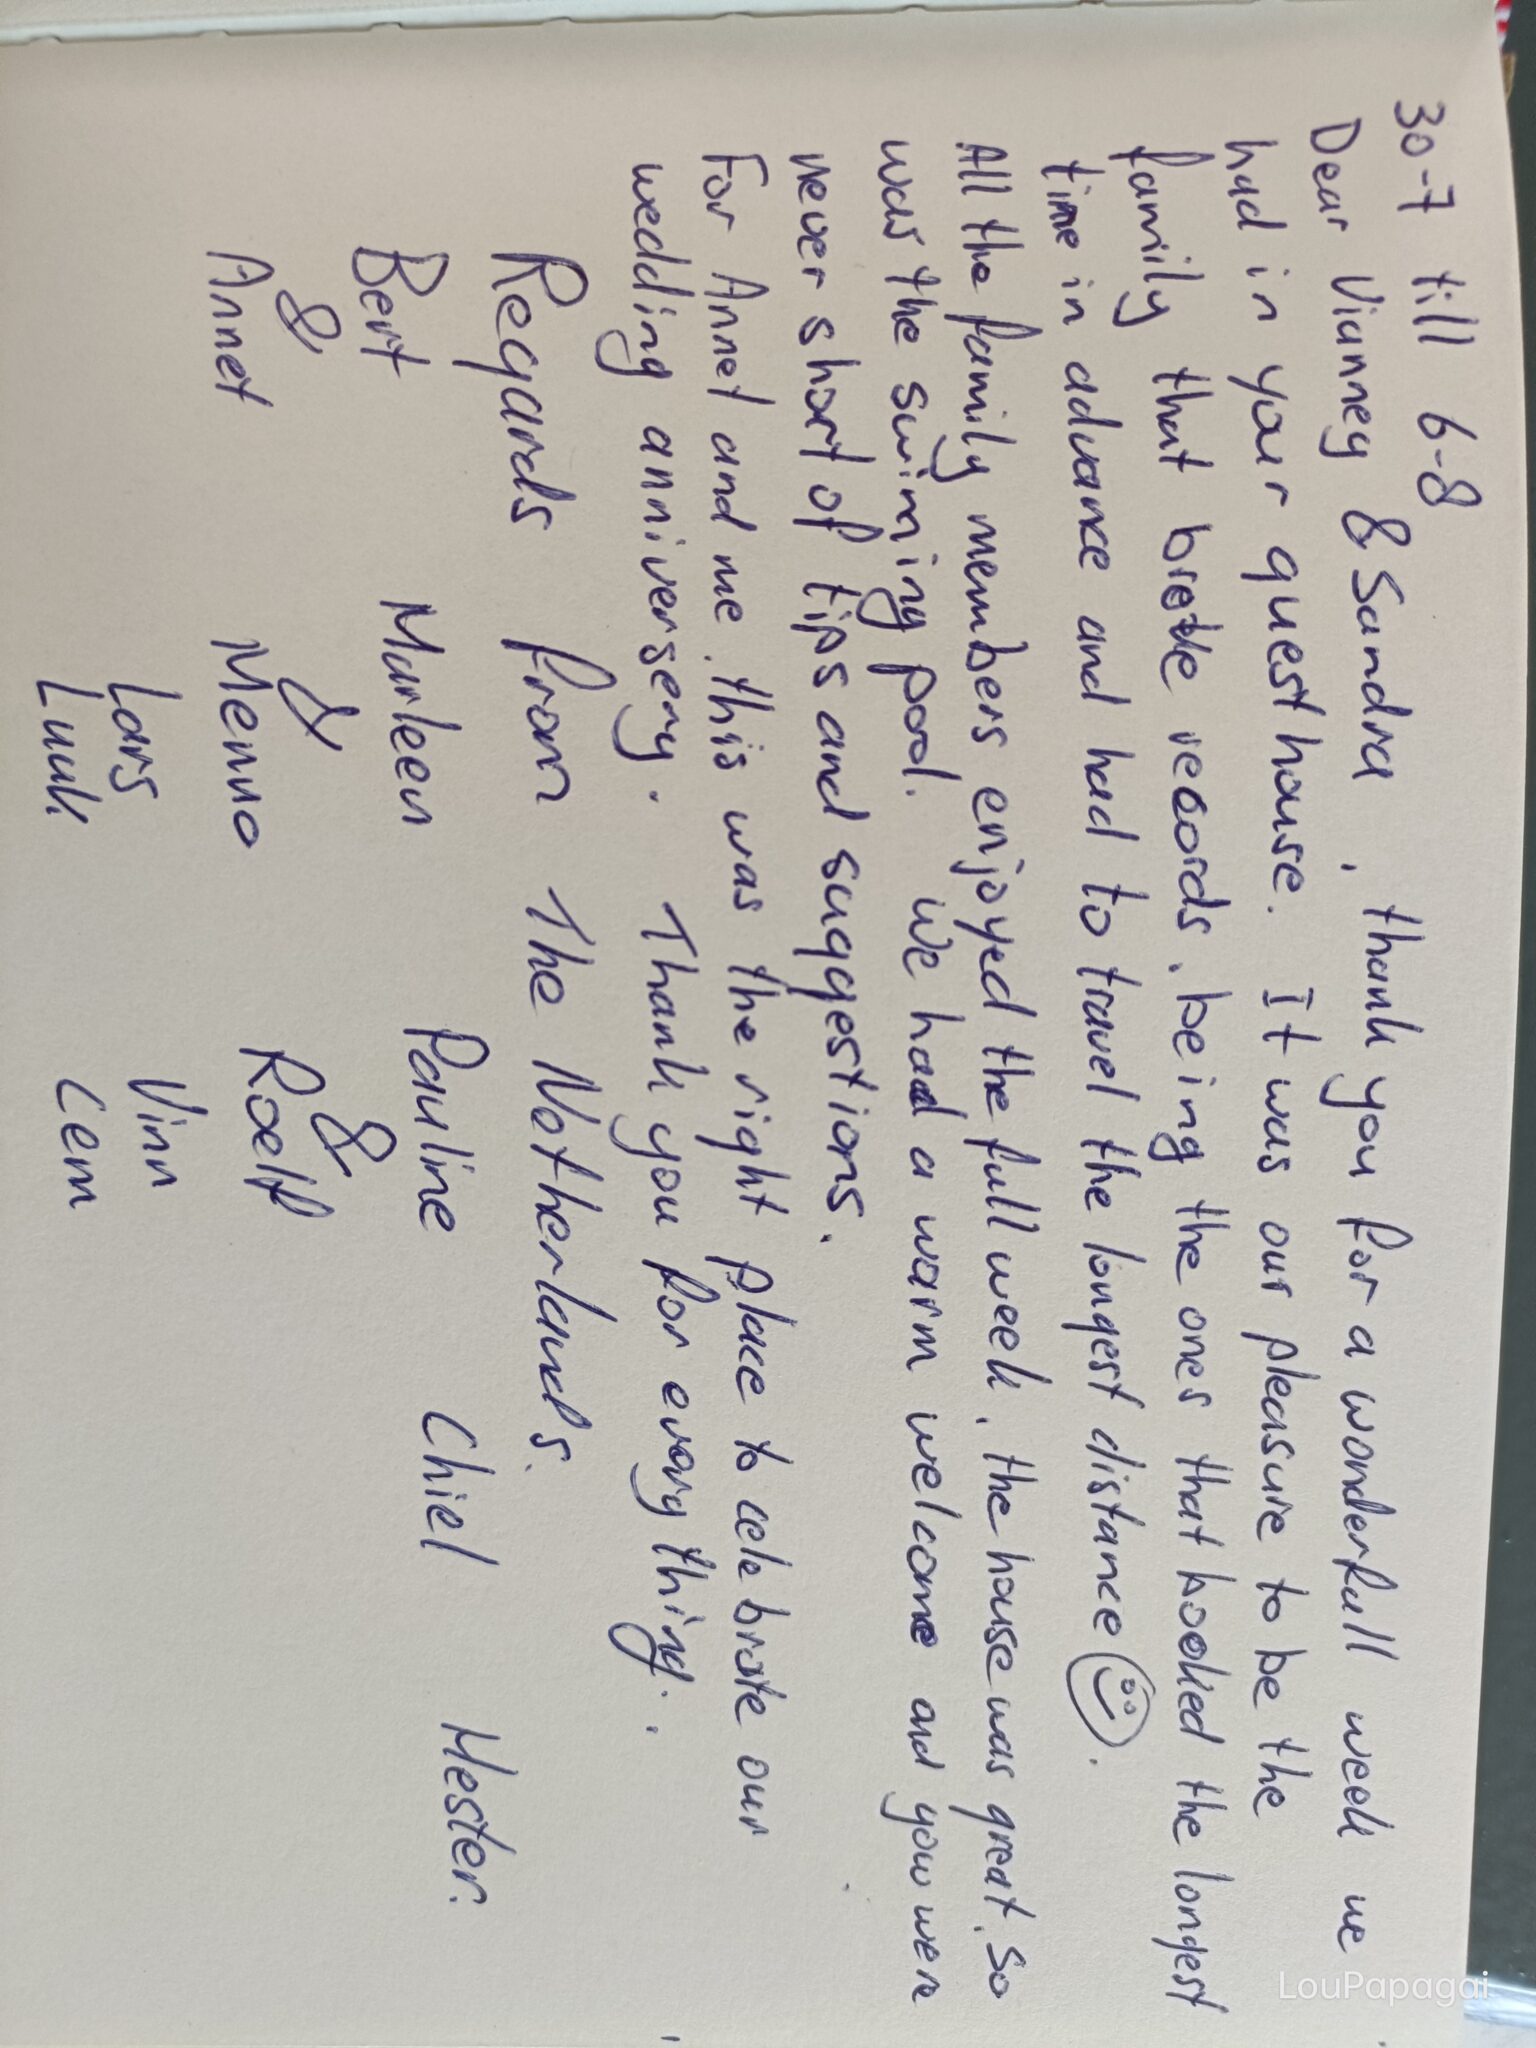 30-7 till 6-8
Dear Vianney & Sandra, thank you for a wonderfull week we
had in your guesthouse. It was our pleasure to be the
family that broke records, being the ones that booked the longest
time in advance and had to travel the longest distance.
All the family members enjoyed the full week, the house was great, so
was the swiming pool. We had a warm welcome and you were
never short of tips and suggestions.
For Annet and me, this was the right place to celebrate our
wedding anniversery. Thank you for every thing.
Regards from The Netherlands.
Bert Marleen Pauline Chiel Hester.
& & &
Annet Menno Roelf
Lars Vinn
Luuk Cem
LouPapagai